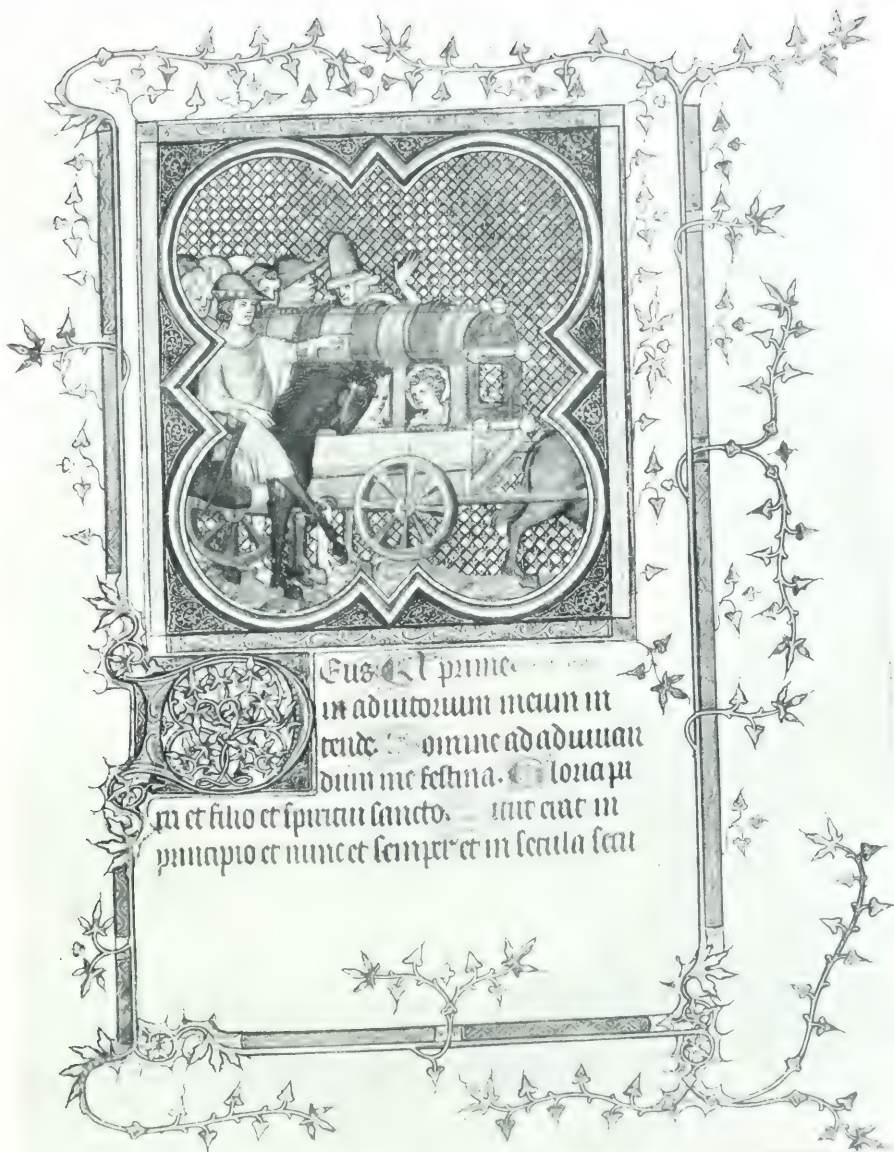 Deus. A prime.
in adiutorium meum in
tende. Domine ad adiuuan
dum me festina. Gloria pa
tri et filio et spiritui sancto. Sicut erat in
principio et nunc et semper et in secula secu